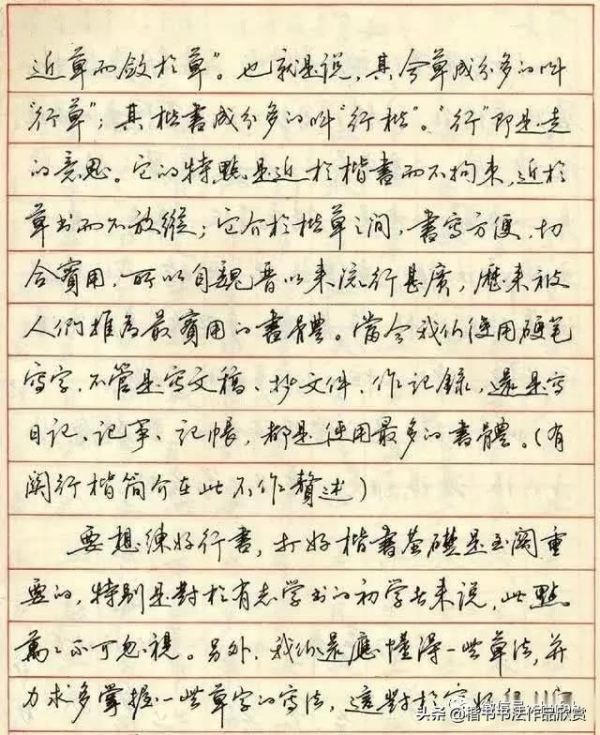 近草而斂於草”。也就是说，其今草成分多的叫
“行草”；其楷書成分多的叫“行楷”。“行”即是走
的意思。它的特點是近於楷書而不拘束，近於
草书而不放縱；它介於楷草之间，書寫方便，切
合實用，所以自魏晋以来流行甚廣，歷来被
人們推為最實用的書體。當今我们使用硬笔
寫字，不管是寫文稿、抄文件、作記録，還是寫
日记、记事、记帳，都是使用最多的書體。（有
関行楷简介在此不作贅述）
要想練好行書，打好楷書基礎是至関重
要的，特别是對於有志学书的初学者来说，此點
萬萬不可忽視。另外，我们還應懂得一些草法，并
力求多掌握一些草字的寫法，這對於寫好行
头条 @楷书书法作品欣赏